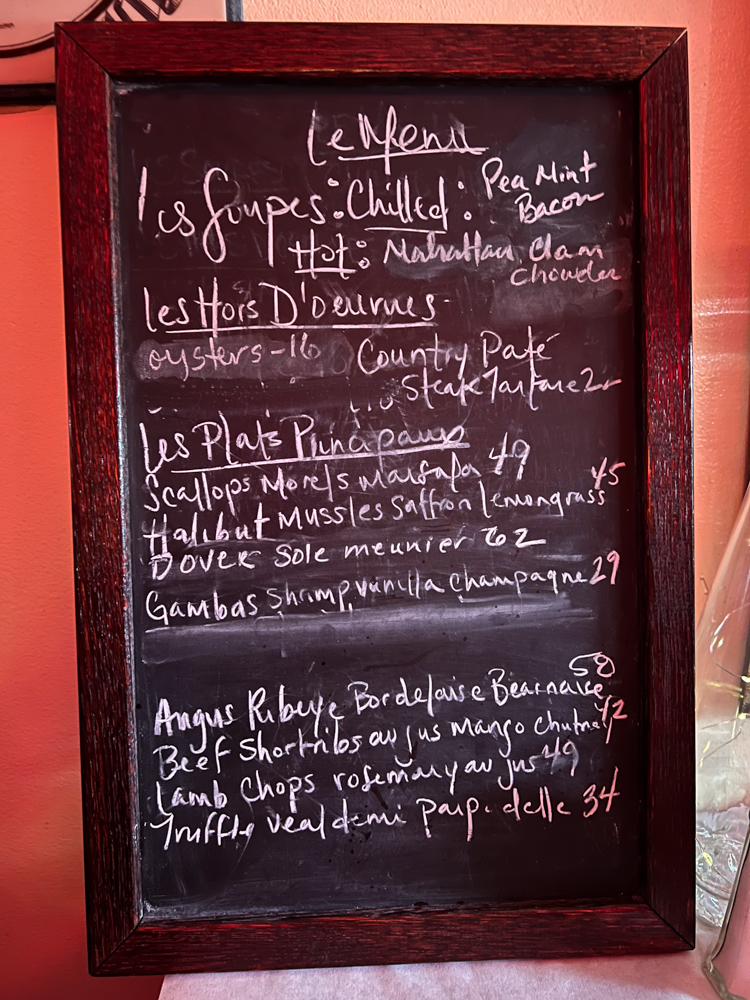 Le Menu
Les Soupes: Chilled: Pea Mint
Bacon
Hot: Manhattan Clam
Chowder
Les Hors D'oeuvres
oysters - 16 Country Paté
Steak Tartare
Les Plats Principaux
Scallops Morels Marsala 49
Halibut Mussles Saffron lemongrass 45
Dover Sole meunier 62
Gambas Shrimp, vanilla champagne 29
Angus Ribeye Bordelaise Bearnaise 58
Beef Shortribs au jus mango chutney 42
Lamb Chops rosemary au jus 49
Truffle veal demi papardelle 34